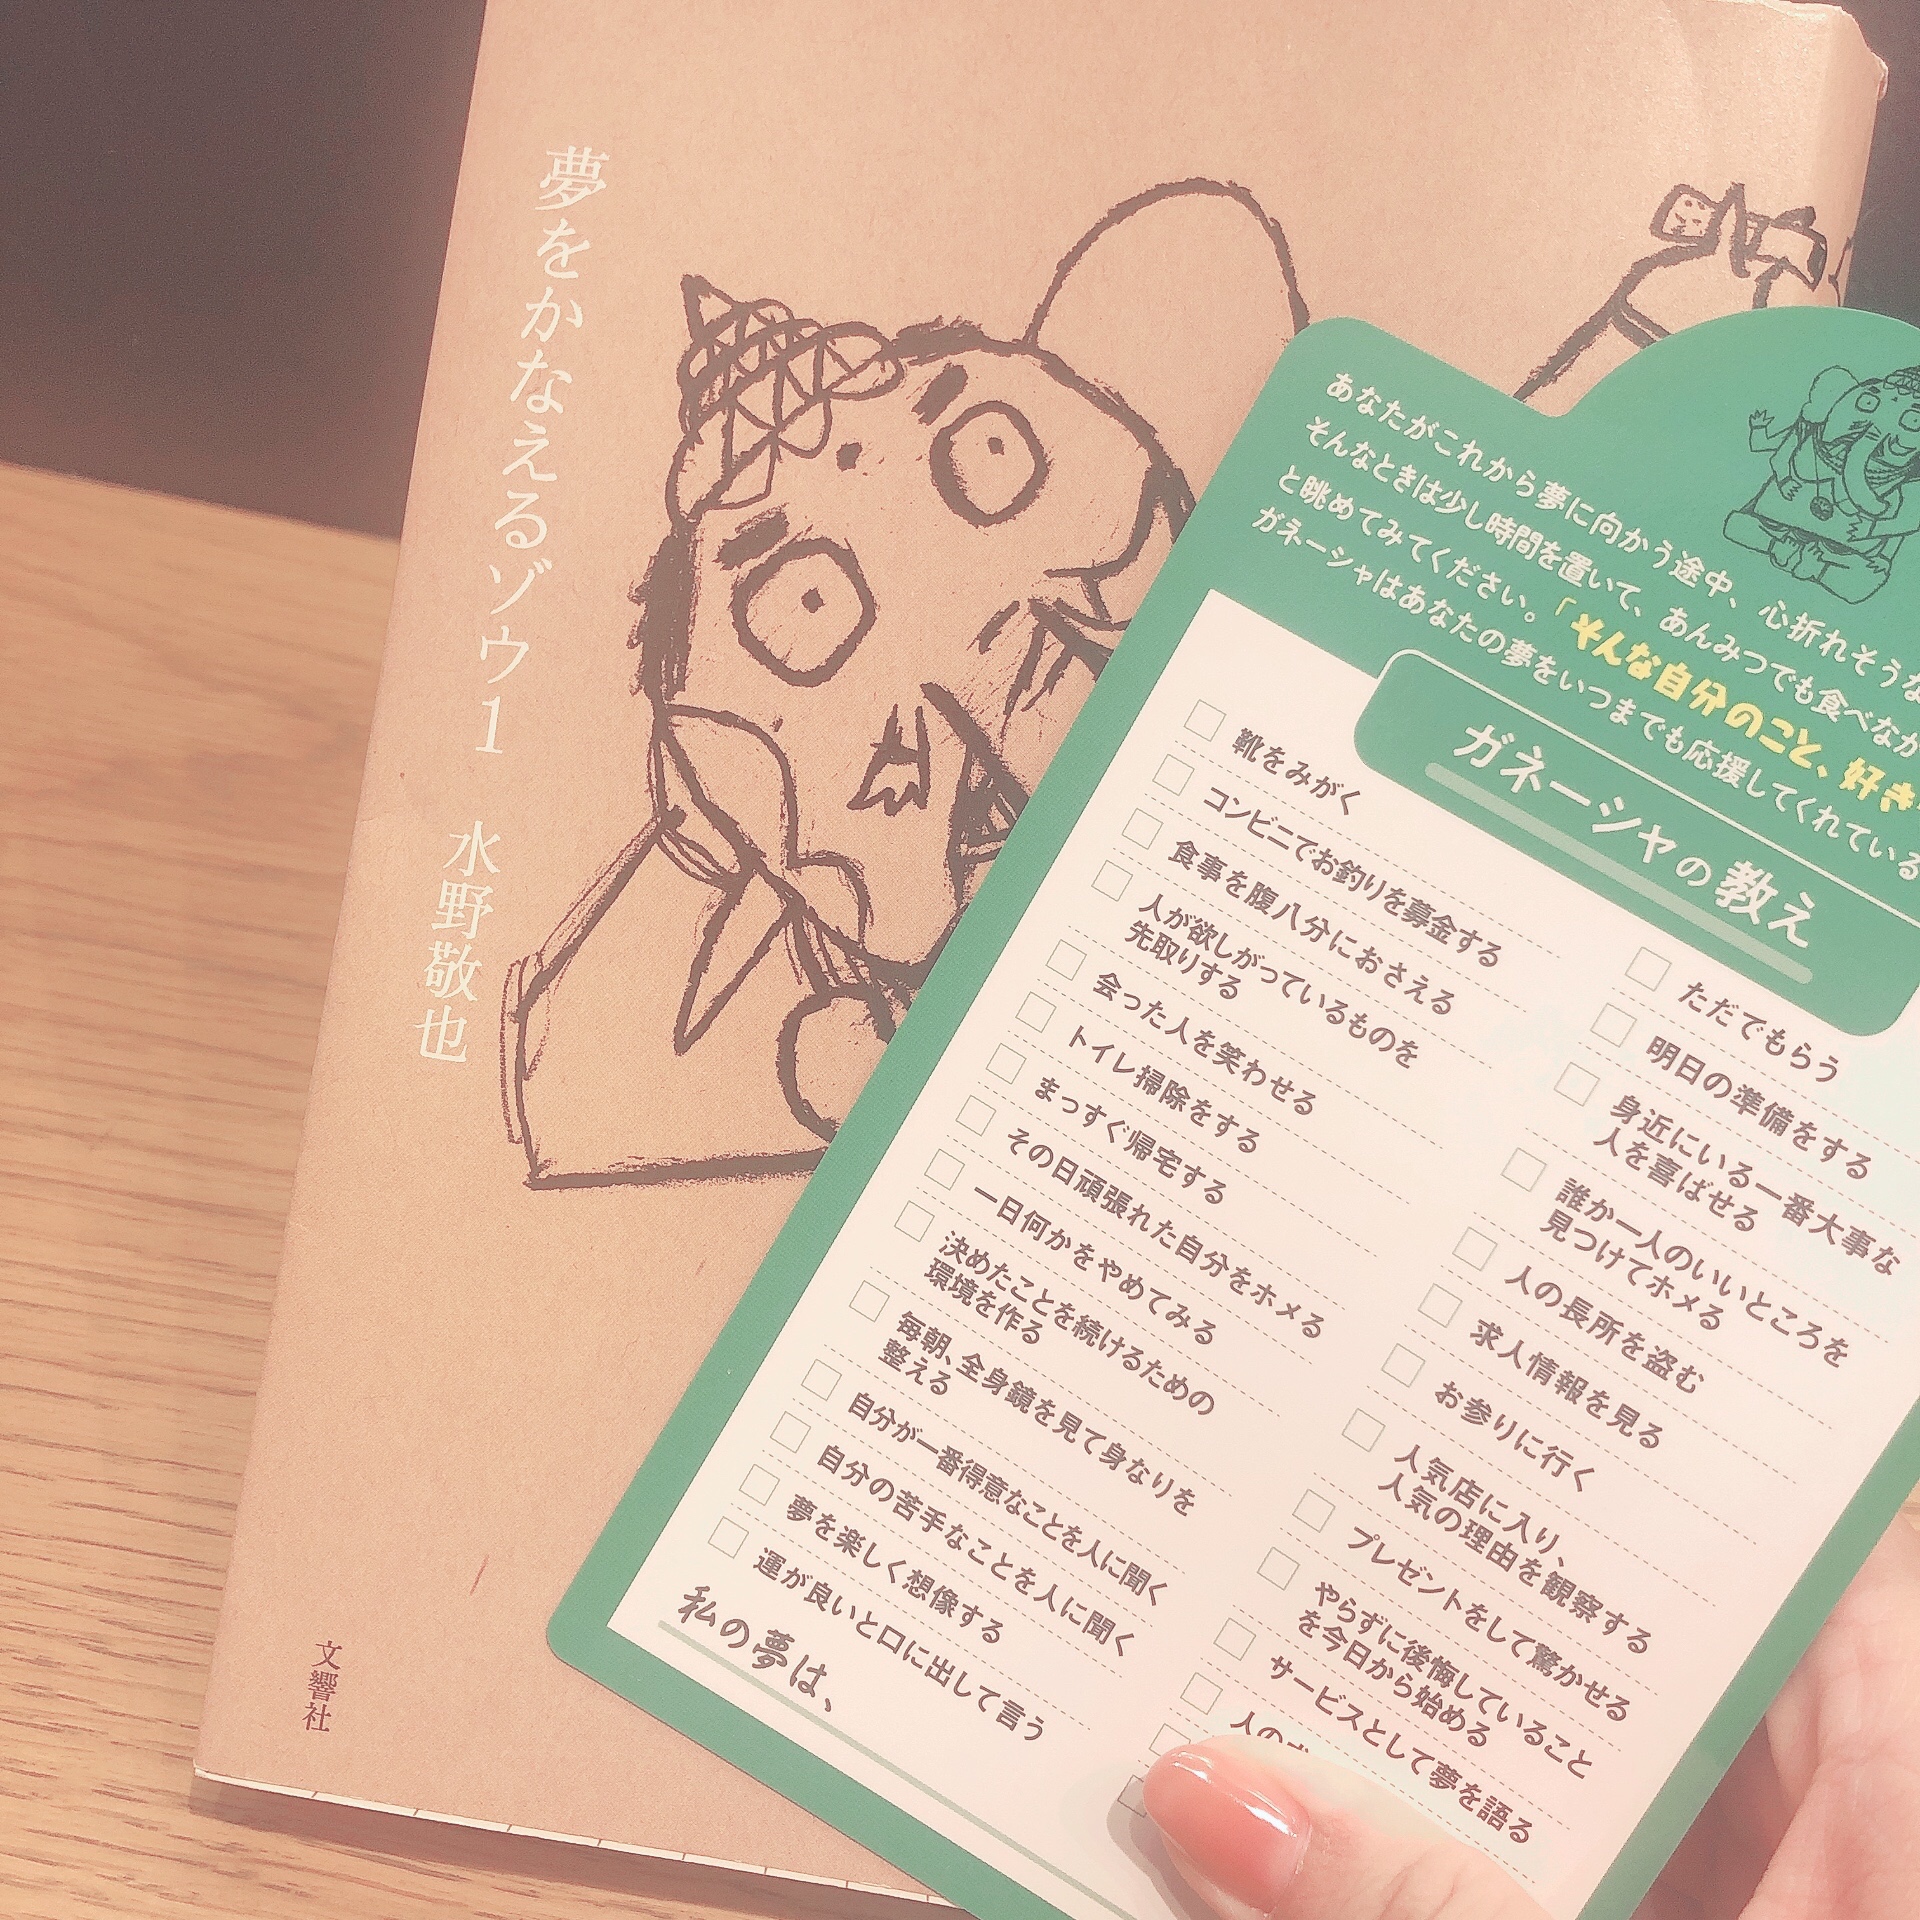 夢をかなえるゾウ1
水野敬也
文響社
あなたがこれから夢に向かう途中、心折れそうな
そんなときは少し時間を置いて、あんみつでも食べなが
と眺めてみてください。「そんな自分のこと、好き
ガネーシャはあなたの夢をいつまでも応援してくれている
ガネーシャの教え
靴をみがく
コンビニでお釣りを募金する
食事を腹八分におさえる
人が欲しがっているものを
先取りする
会った人を笑わせる
トイレ掃除をする
まっすぐ帰宅する
その日頑張れた自分をホメる
一日何かをやめてみる
決めたことを続けるための
環境を作る
毎朝、全身鏡を見て身なりを
整える
自分が一番得意なことを人に聞く
自分の苦手なことを人に聞く
夢を楽しく想像する
運が良いと口に出して言う
ただでもらう
明日の準備をする
身近にいる一番大事な
人を喜ばせる
誰か一人のいいところを
見つけてホメる
人の長所を盗む
求人情報を見る
お参りに行く
人気店に入り、
人気の理由を観察する
プレゼントをして驚かせる
やらずに後悔していること
を今日から始める
サービスとして夢を語る
人の
私の夢は、